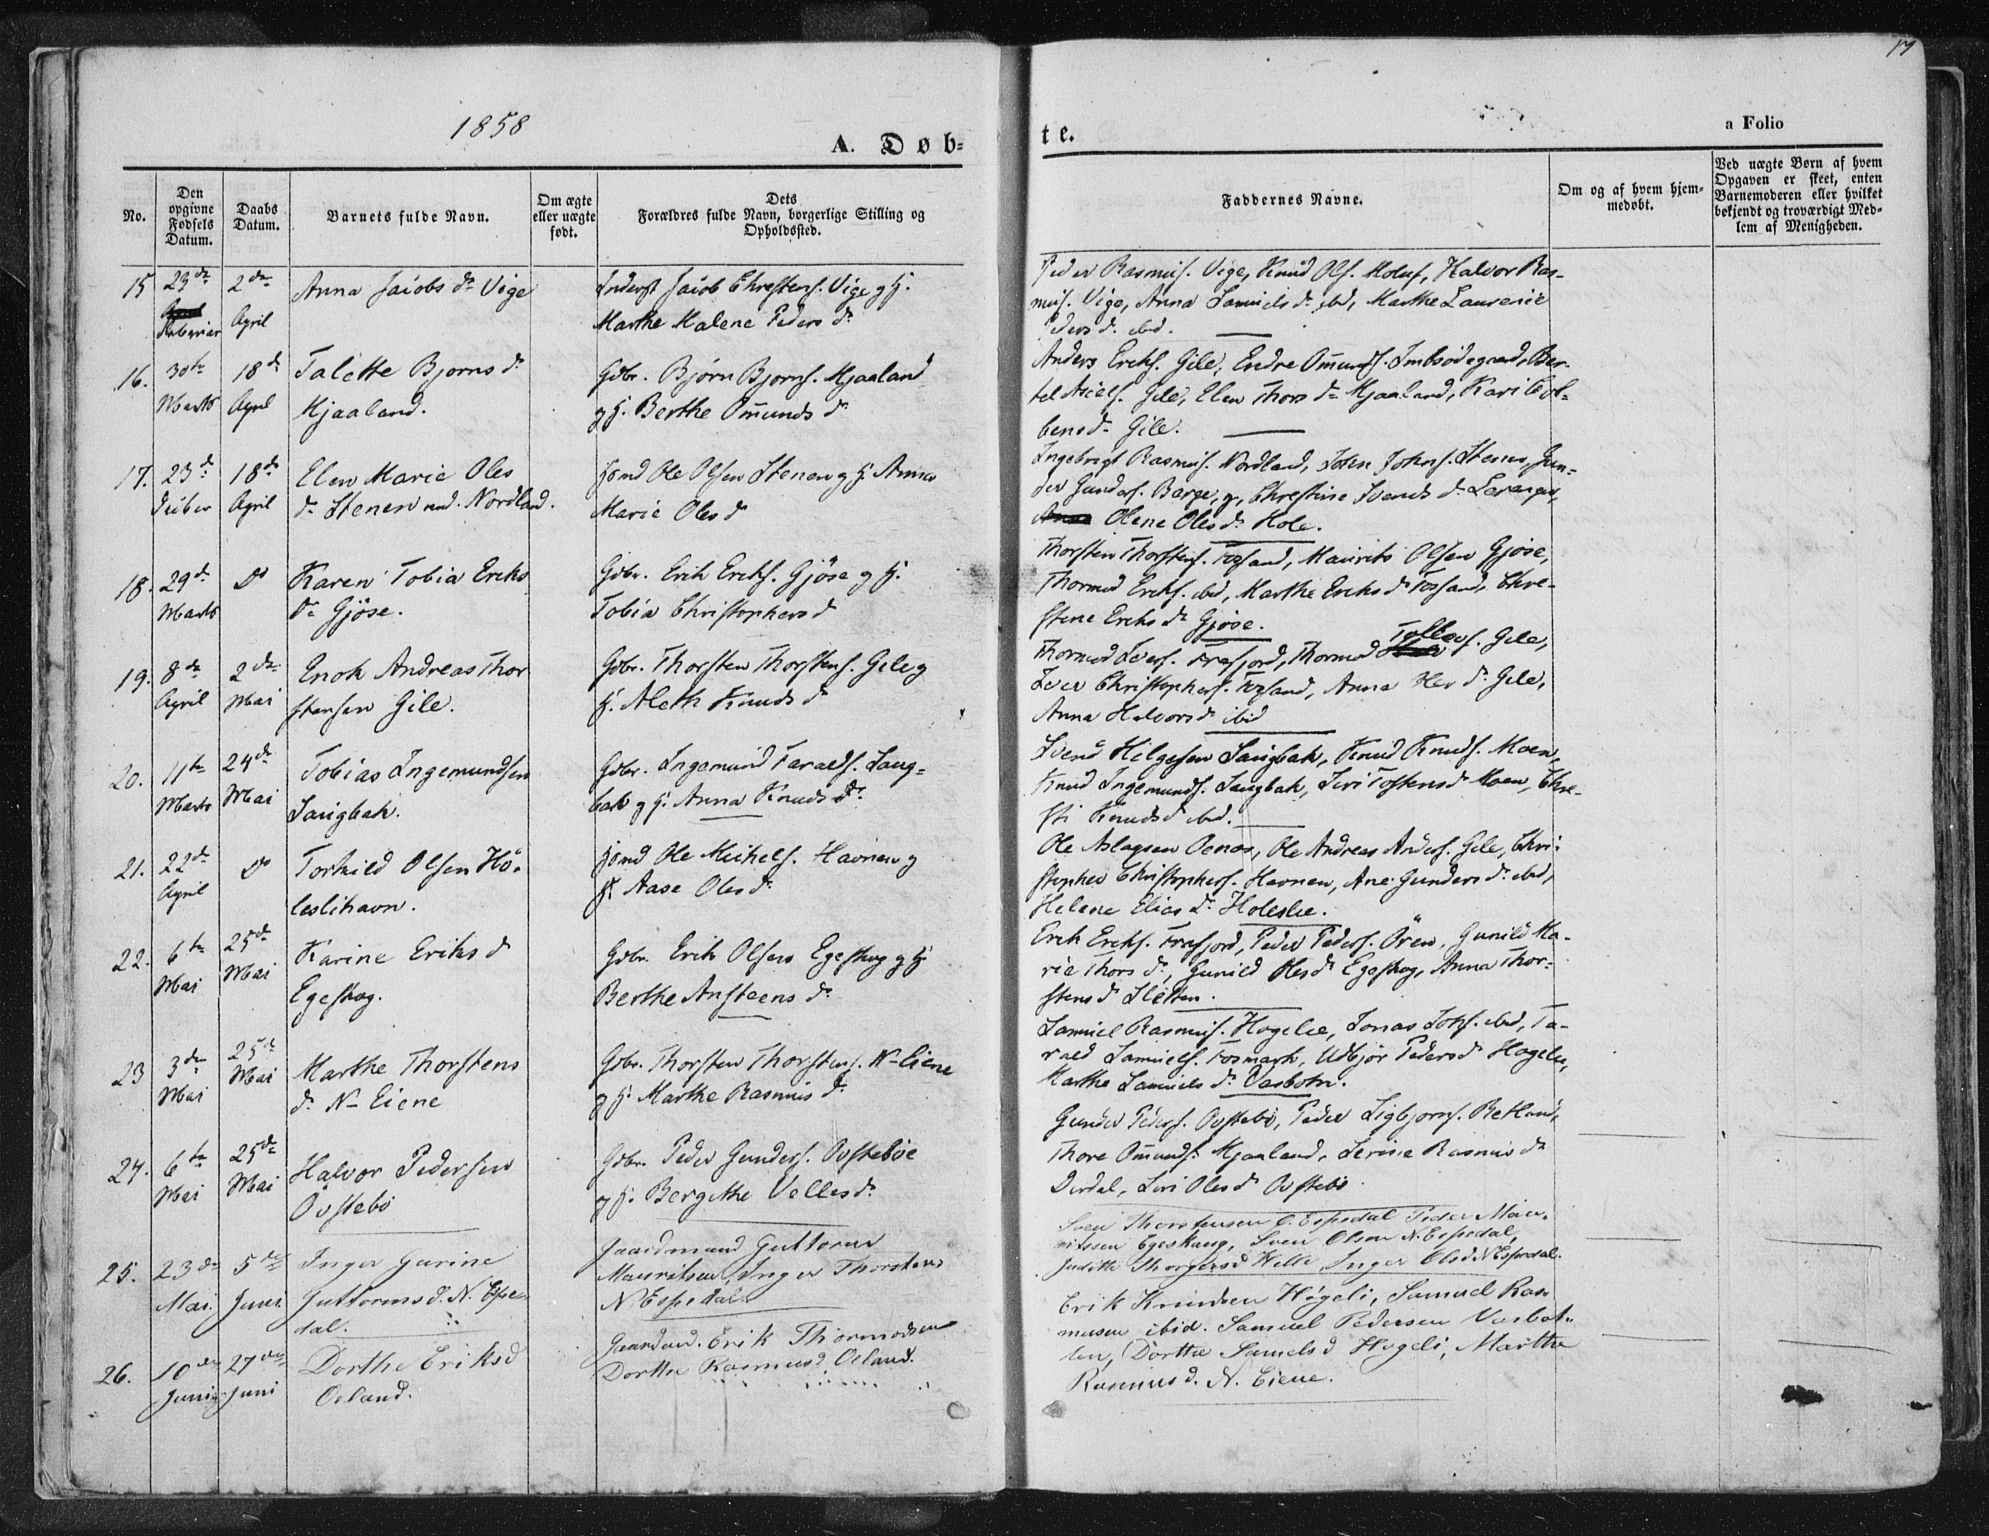 17
1858
A. Døb-
te.
a Folio
No.
Den
opgivne
Fødsels
Datum.
Daabs
Datum.
Barnets fulde Navn.
Om ægte
eller uægte
født.
Dets
Forældres fulde Navn, borgerlige Stilling og
Opholdssted.
Faddernes Navne.
Om og af hvem hjem-
medøbt.
Ved uægte Børn af hvem
Opgaven er skeet, enten
Barnemoderen eller hvilket
bekjendt og troværdigt Med-
lem af Menigheden.
15
23de
Februar
2den
April
Anna Jacobs dr Vige
Inderst Jacob Chrestens. Vige og H.
Marthe Malene Peders dr
Peder Rasmus. Vige, Knud Ols. Molus, Halvor Ras-
mus. Vige, Anna Samuels dr ibid, Marthe Laurense
Peders d. ibid.
16.
30te
Marts
18de
April
Talette Bjorns dr
Mjaaland.
Gdbr. Bjørn Bjorns. Mjaaland
og H. Berthe Omunds dr
Anders Ereks. Gile, Endre Omunds. Imbsødegaard, Ber-
tel Asiels. Gile, Elen Thors dr Mjaaland, Kari Tor-
bens dr Gile.
17.
23d
18de
April
Elen Marie Oles
dr Stenen und. Nordland.
Hsmd Ole Olsen Stenen og H. Anna
Marie Oles d
Ingebrigt Rasmus. Nordland, John Johns. Stenes, Gun-
der Gunders. Barge, g. Chrestine Svends dr
Olene Oles dr Hole.
18.
29d
Marts
Do
Karen Tobia Ereks
dr Gjöse.
Gdbr. Erik Ereks. Gjöse og H.
Tobia Christophers d
Thorsten Thorstens. Fosand, Maurits Olsen Gjöse,
Thormod Ereks. ibid, Marthe Ereks d Fosand, Chre-
stene Ereks dr Gjöse.
19.
8de
April
2den
Mai
Enok Andreas Thor
stensen Gile.
Gdbr. Thorsten Thorstens. Gile og
H. Aleth Knuds d
Thormod Ivers. Frafjord, Thormod Tollevs. Gile,
Iver Christophers. Fosand, Anna Oles dr Gile,
Anna Halvors d ibid
20.
11te
Marts
24de
Mai
Tobias Ingemundsen
Langbak.
Gdbr. Ingemund Taralds. Lang-
bak og H. Anna Knuds dr
Svend Helgesen Langbak, Knud Knuds. Moen,
Knud Ingemunds. Langbak, Siri Tostens d Moen, Chre-
sti Knuds d ibid.
21.
22de
April
Do
Torkild Olsen Hö-
leslihavn.
Hsmd Ole Michels. Havnen og
H. Aase Oles dr
Ole Aslagsen Oenas, Ole Andreas Anders. Gile, Chri-
stopher Christophers. Havnen, Ane Gunders dr ibid,
Helene Elias dr Holeslie.
22.
6te
Mai
25de
Mai
Karine Eriks d
Egeskog.
Gdbr. Erik Olsen Egeskog og H
Berthe Ansteens dr
Erik Ereks. Frafjord, Peder Peders. Ören, Gunild Ma-
rie Thors d, Gunild Oles d Egeskog, Anna Thor-
stens d Sletten.
23
3de
Mai
25de
Mai
Marthe Thorstens
d. N- Eiene
Gdbr. Thorsten Thorstens. N- Eiene
og H. Marthe Rasmus d.
Samuel Rasmus. Hogelie, Jonas Johs. ibid, Ta-
rald Samuels. Fosmark, Udbjör Peders d Hogelie,
Marthe Samuels dr Vasbotn.
24.
6te
Mai
25de
Mai
Halvor Pedersen
Övstebö
Gdbr. Peder Gunders. Ovsteböe
og H. Bergithe Velles d.
Gunder Peders. Ovstebö, Peder Sigbjorns. Retland,
Thore Omunds. Mjaaland, Serine Rasmus dr
Dirdal, Siri Oles d Ovstebö.
25.
23de
Mai.
5te
Juni
Inger Gurine
Guttorms d. N. Espe-
dal.
Gaardmand Guttorm
Mauritsen, Inger Thorstens
N Espedal
Sven Thorstensen Ö. Espedal Peder Mau-
ritssen Egeskaug, Sven Olsen N. Espedal,
Judithe Thorgersd Helle Inger Olsd N Espedal.
26.
10de
Juni
27de
Juni
Dorthe Eriksd
Oeland.
Gaardmd. Erik Thormodsen
Dorthe Rasmusd Oeland.
Erik Knudsen Högeli, Samuel Ras-
musen ibid. Samuel Pedersen Vasbot-
ten, Dorthe Samelsd Hogeli, Marthe
Rasmus d. N. Eiene.